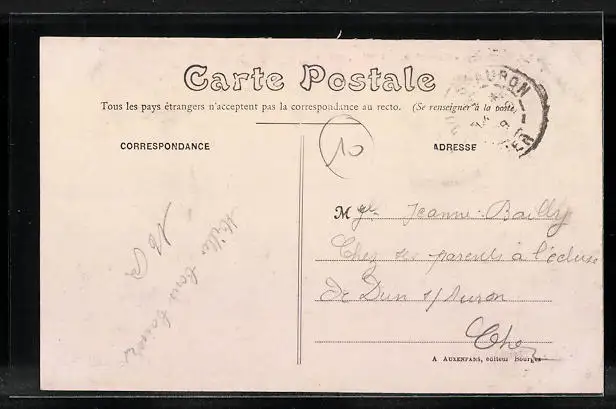 Carte Postale
Tous les pays étrangers n'acceptent pas la correspondance au recto. (Se renseigner à la poste)
AURON
10
CORRESPONDANCE
ADRESSE
Mlle Jeanne Bailly
Chez ses parents à l'écluse
de Dun s/ Auron
Cher
Mille bons
A AUXENFANS, editeur Bourges